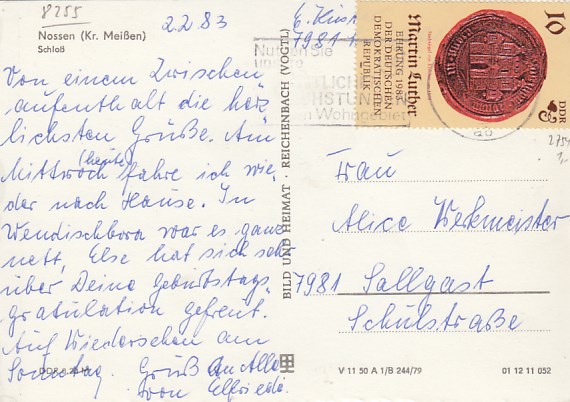 8255
Nossen (Kr. Meißen)
Schloß
2.2.83
Von einem Zwischen
aufenthalt die herz
lichsten Grüße. Am
Mittwoch (heute) fahre ich wie
der nach Hause. In
Wendischbora war es ganz
nett, Else hat sich sehr
über Deine Geburtstags
gratulation gefreut.
Auf Wiedersehen am
Sonntag. Gruß an Alle
von Elfriede.
BILD UND HEIMAT · REICHENBACH (VOGTL)
E.
7981
Nutzen Sie
unsere
im Wohngebiet
Martin Luther
EHRUNG 1983
DER DEUTSCHEN
DEMOKRATISCHEN
REPUBLIK
10
DDR
Frau
Alice Werkmeister
7981 Sallgast
Schulstraße
V 11 50 A 1/B 244/79
01 12 11 052